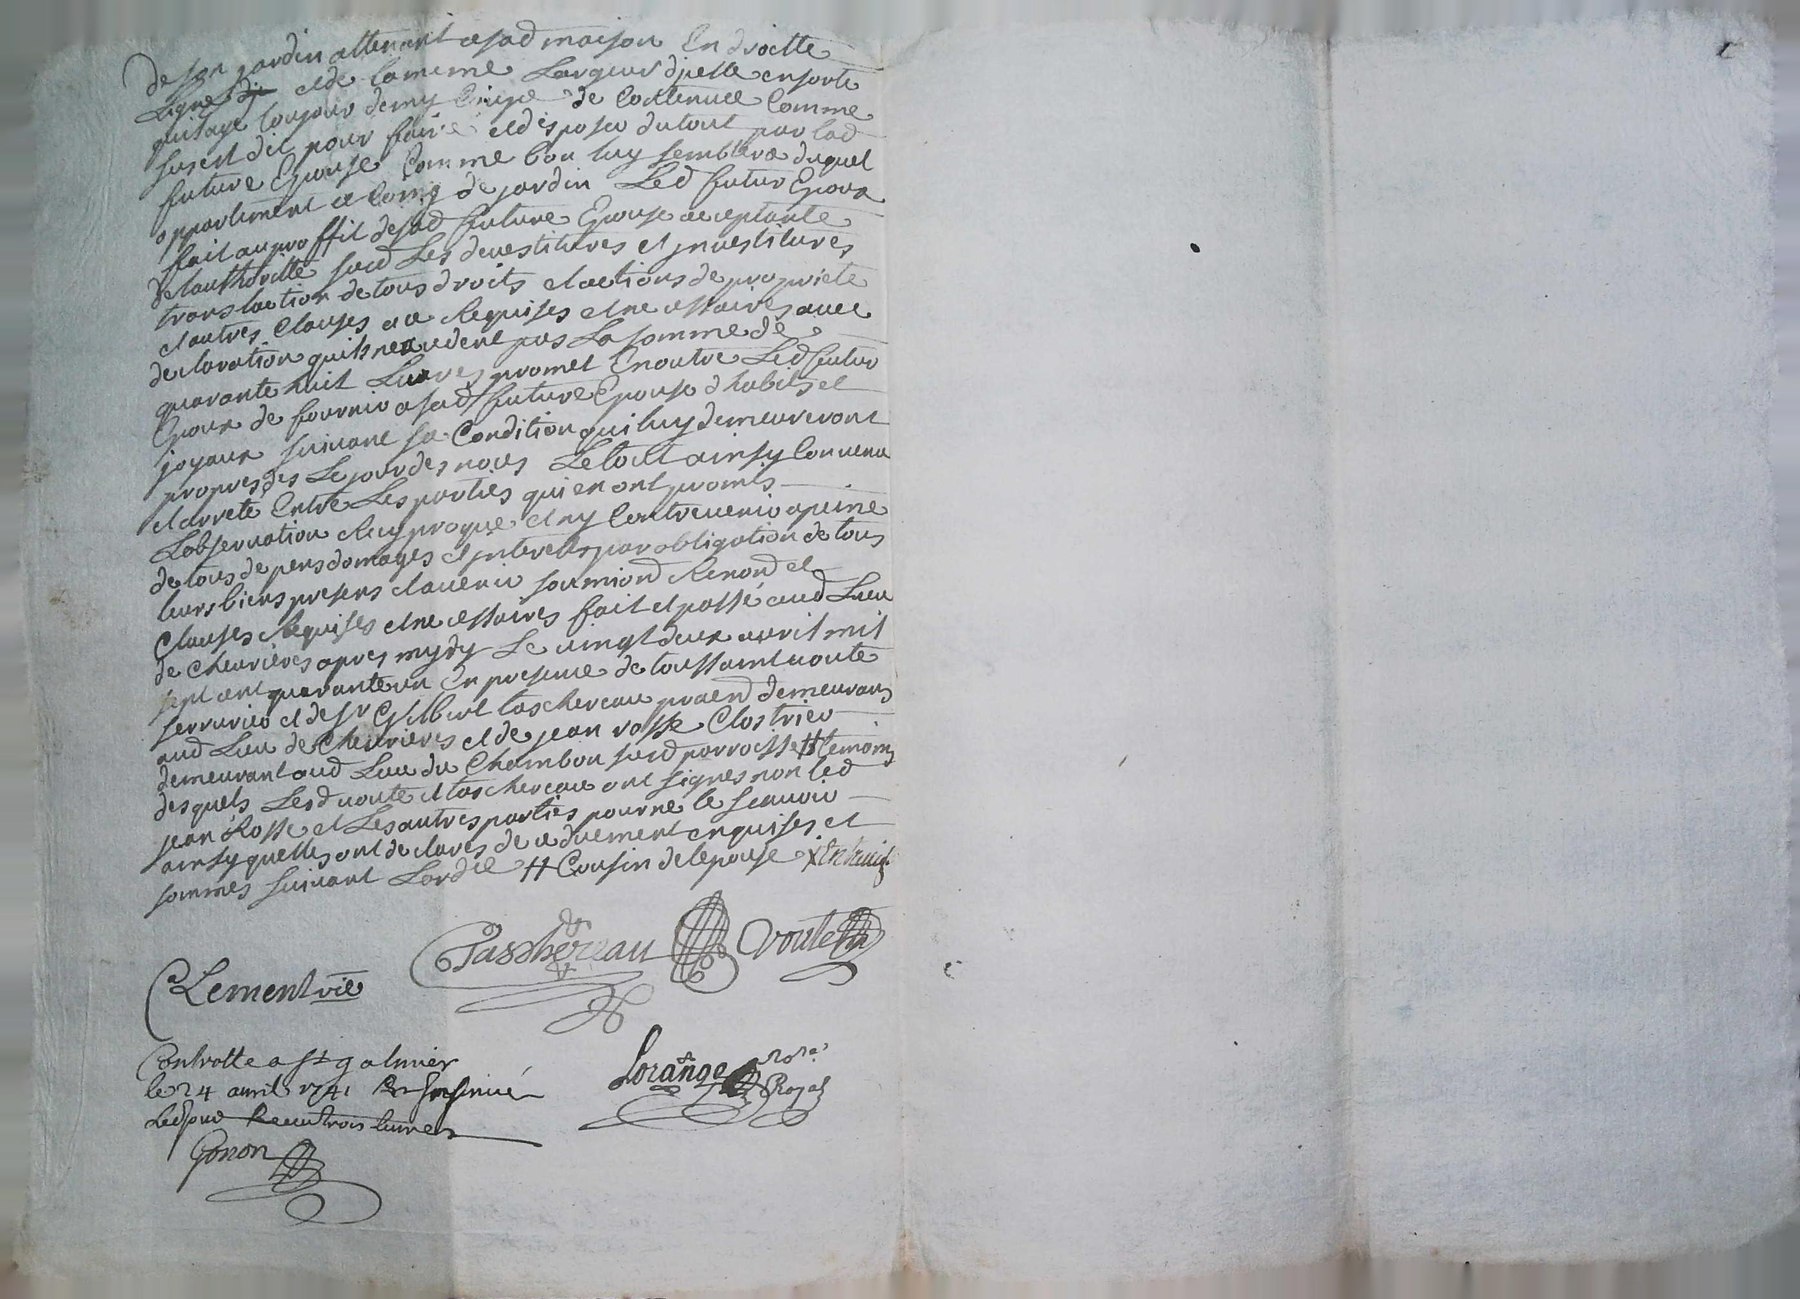 de son jardin attenant a sad maison En droitte
Ligne et de la meme Largeur d'jcelle ensorte
quil aye toujours demy Coupe de Contenue Comme
susest dit pour faire et disposer du tout par lad
future Epouse Comme bon luy semblera duquel
appartement et Coing de jardin Led futur Epoux
fait au proffit de sad future Epouse acceptante
de lauthoritte susd Les devestitures et jnvestitures
translaction de tous droits et actions de propriete
et autres Clauses a ce Requises et necessaires avec
declaration quils nexcedent pas La somme de
quarante huit Livres promet En outre Led futur
Epoux de fournir a sad future Epouse d habits et
joyaux suivant sa Condition qui luy demeureront
propres des Le jour des noces Le tout ainsy Convenu
et arreté Entre Les parties qui en ont promis
Lobservation Reciproque et ny Contrevenir a peine
de tous depens domages et jnterets par obligation de tous
leurs biens presens et avenir soumiond Renond et
Clauses Requises et necessaires fait et passé aud Lieu
de chevrieres apres mydy Le vingt deux avril mil
sept cent quarante un En presence de toussaint voute
serrurier et de sr Gilbert taschereau praend demeurans
aud Lieu de Chevrieres et de jean rosse Clostrier
demeurant aud Lieu du Chambon susd parroisse # temoins
desquels Lesd voute et taschereau ont signes non led
jean Rosse et Les autres parties pour ne le scavoir
ainsy quelles ont declarés de ce duement enquises et
sommes suivant Lordce # Cousin de lepouse
Taschereau Voute
Clement vic
Controlle a st galmier
le 24 avril 1741 Et Insinué
Led jour Receu trois livres
Gonon
Lorange nore Royal